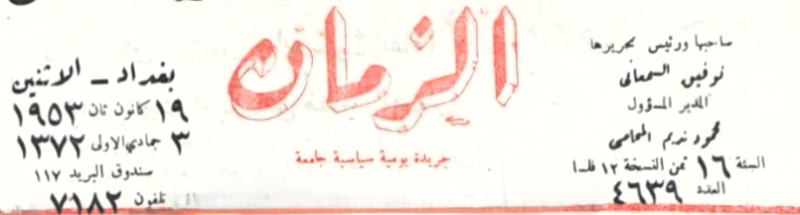 صاحبها ورئيس تحريرها
توفيق السمعاني
المدير المسؤول
محمود نديم المحامي
السنة ١٦ ثمن النسخة ١٢ فلسا
العدد ٤٦٣٩
الزمان
جريدة يومية سياسية جامعة
بغداد ــ الاثنين
١٩ كانون ثان ١٩٥٣
٣ جمادي الاولى ١٣٧٢
صندوق البريد ١١٧
تلفون ٧١٨٢